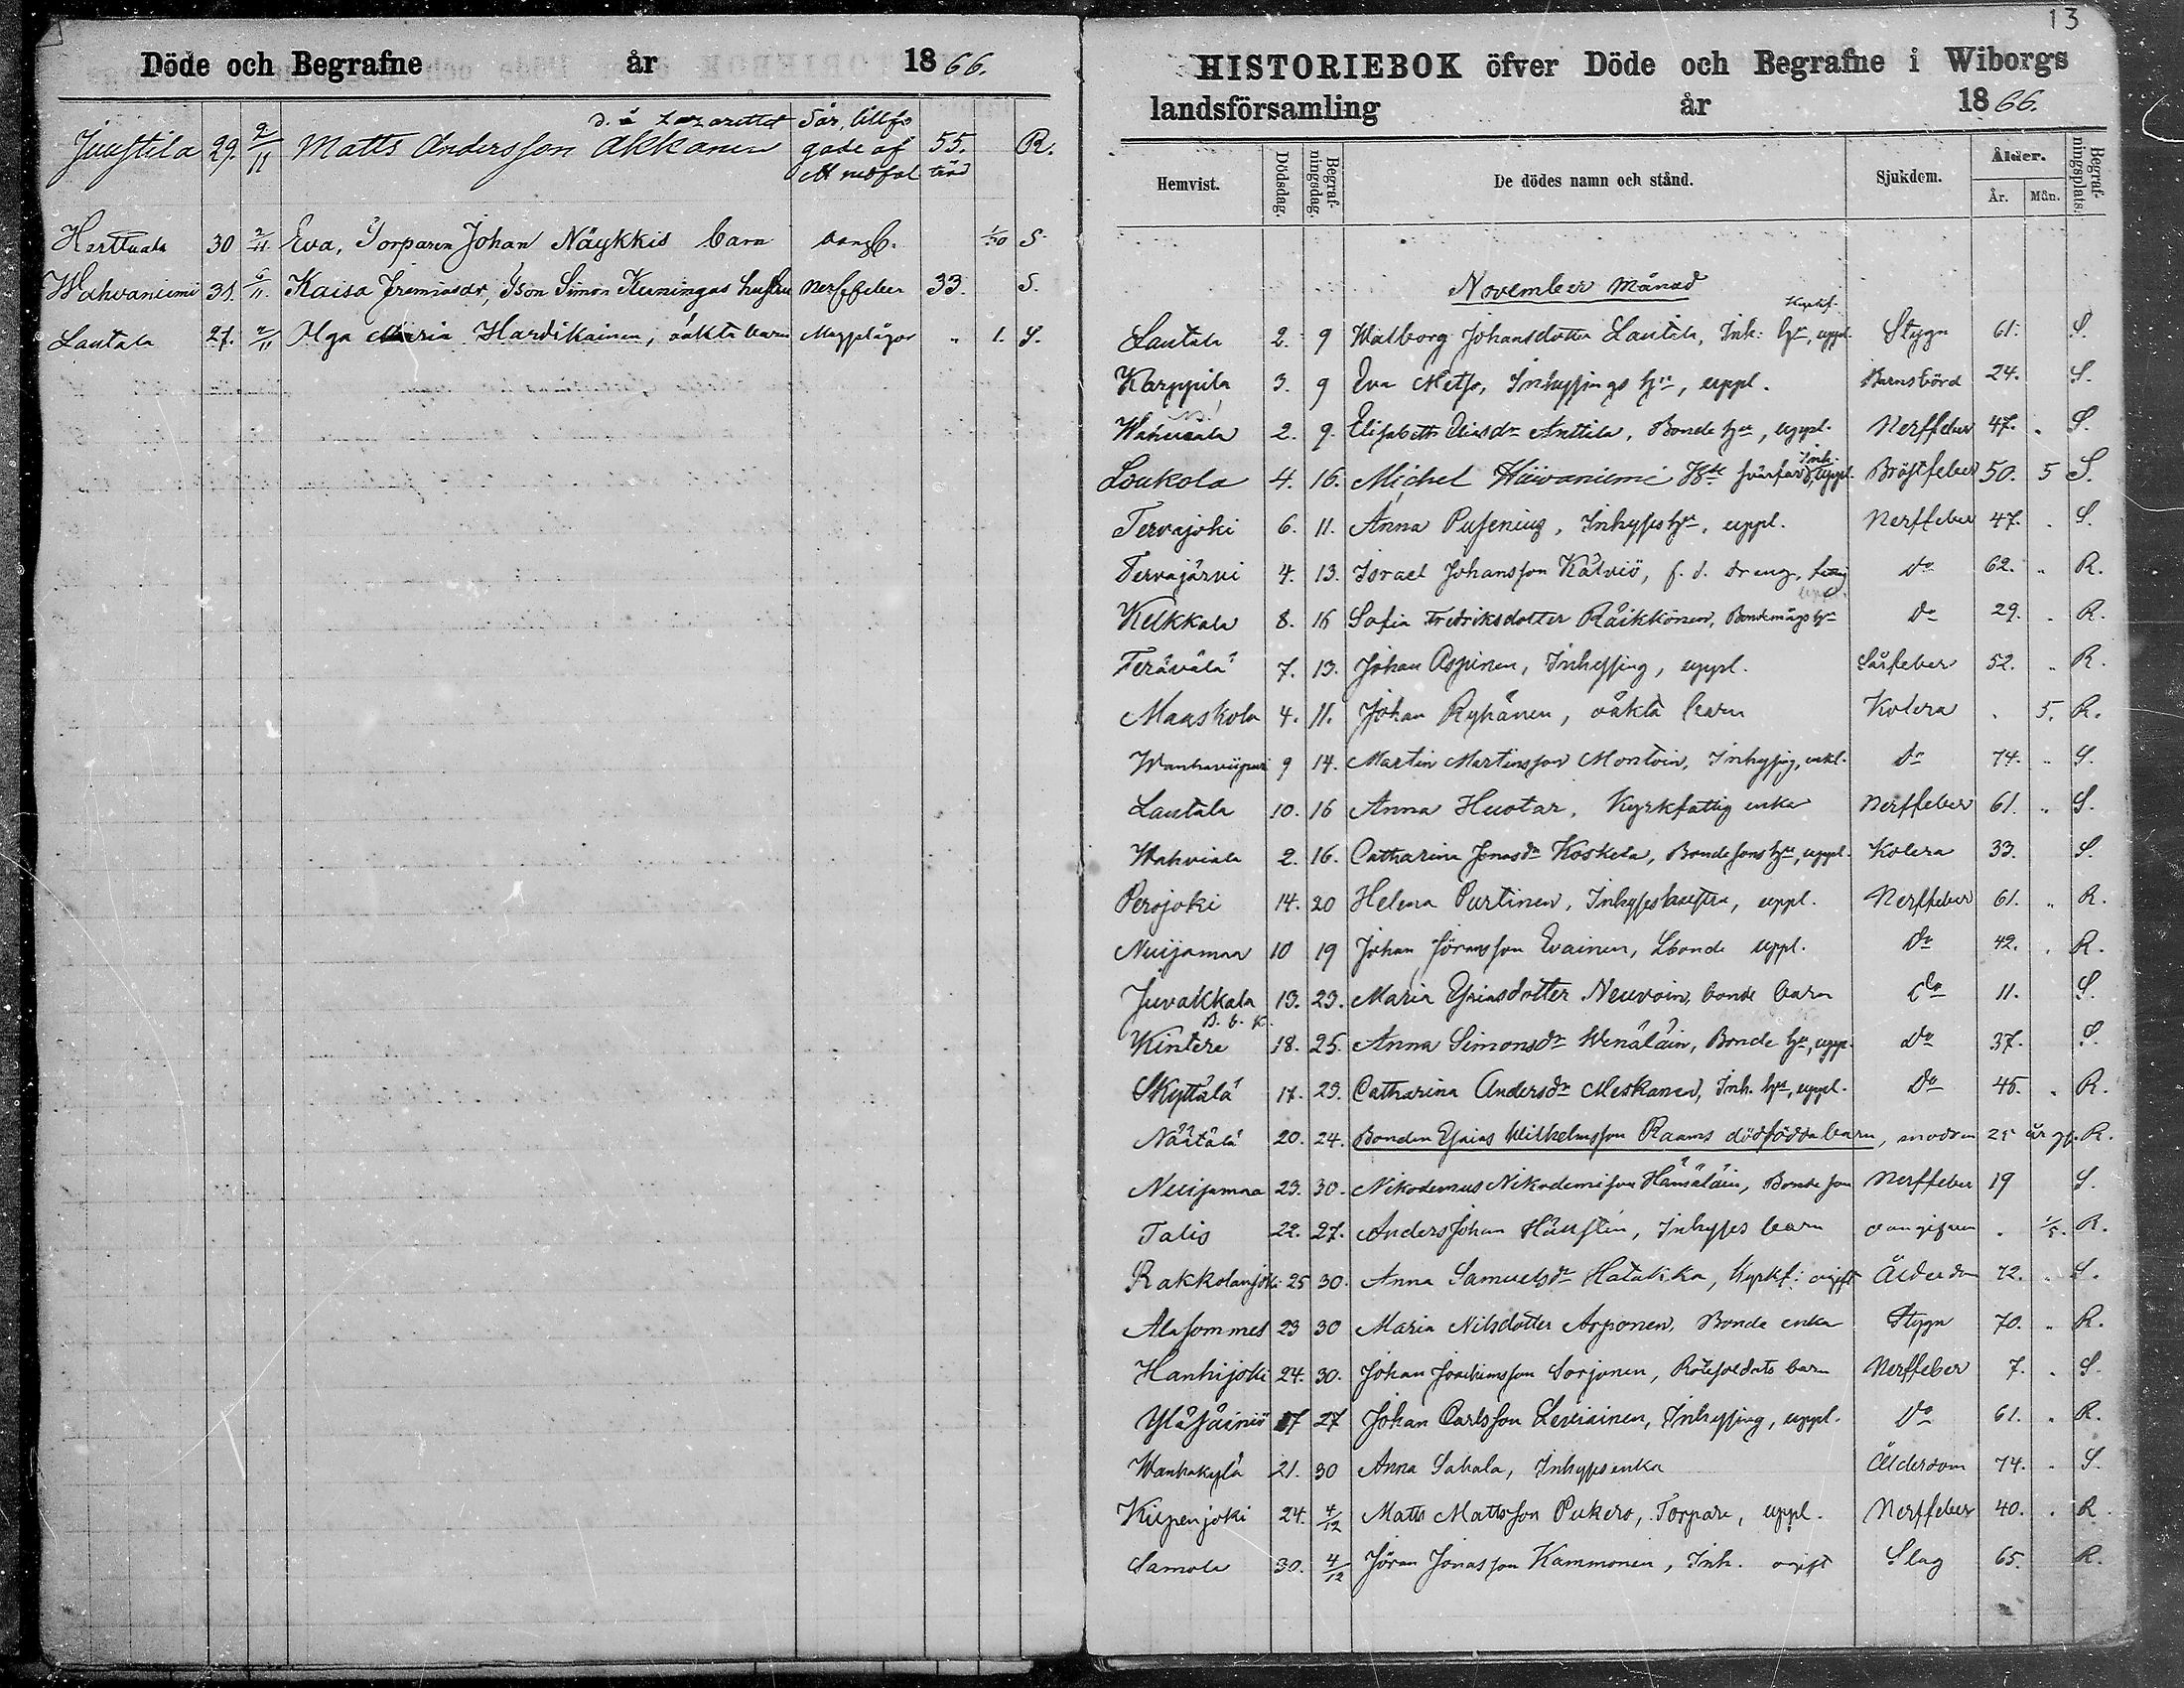 Döde och Begrafne år 1866.
d. å Lazarettet Sår, tillfo
Juustila 29. 2/11 Matts Andersson Akkanen gade af 55. R.
et nedfal träd
Herttuala 30 2/11. Eva, Torparen Johan Näykkis barn oangf. 1/30 S.
Wahvaniemi 31. 6/11. Kaisa Jeremiasdr, Json Simon Kuningas hustru Nerffeber 33. S.
Lautala 27. 2/11 Olga Maria Hardikainen, oäkta barn Magplågor " 1. S.
13
HISTORIEBOK öfver Döde och Begrafne i Wiborgs
landsförsamling år 1866.
Hemvist. Dödsdag. Begrafningsdag. De dödes namn och stånd. Sjukdom. Ålder. År. Mån. Begrafningsplats.
November månad
Kyrkf.
Lautala 2. 9 Walborg Johansdotter Lautala, Inh. hu, uppl. Stygn 61. S.
Karppila 3. 9 Eva Metso, Inhysings hu, uppl. Barnsbörd 24. S.
Wahviala 2. 9. Elisabeth Eliasdr Anttila, Bonde hu, uppl. Nerffeber 47. " S.
Loukola 4. 16. Michel Häiväniemi Inh. uppl. Bröstfeber 50. 5 S.
Tervajoki 6. 11. Anna Pusenius, Inhyses hu, uppl. Nerffeber 47. . S.
Tervajärvi 4. 13. Israel Johansson Kälviö, f. d. dreng, Do 62. " R.
Kelkkala 8. 16 Sofia Fredriksdotter Räikkönen, Bondemågs hu Do 29. . R.
Terävälä 7. 13. Johan Aspinen, Inhysing, uppl. Sårfeber 52. " R.
Maaskola 4. 11. Johan Ryhänen, oäkta barn Kolera . 5. R.
Wanhaviipuri 9 14. Martin Martinsson Montoin, Inhysing, enkl. Do 74. " S.
Lautala 10. 16 Anna Huotar, Kyrkfattig enka Nerffeber 61. " S.
Wahviala 2. 16. Catharina Jonasdr Koskela, Bondesons hu, uppl. Kolera 33. S.
Perojoki 14. 20 Helena Purtinen, Inhyseshustru, uppl. Nerffeber 61. " R.
Nuijamaa 10 19 Johan Jöransson Evainen, Lbonde uppl. Do 42. . R.
Juvakkala 13. 23. Maria Esiasdotter Neuvoin, bonde barn Do 11. S.
B. b. K.
Kintere 18. 25. Anna Simonsdr Wenäläin, Bonde hu, uppl. Do 37. S.
Skyttälä 17. 23. Catharina Andersdr Meskanen, Inh. hu, uppl. Do 45. . R.
Näätälä 20. 24. Bonden Esias Wilhelmsson Raams dödfödda barn, modren 25 år gl. R.
Nuijamaa 23. 30. Nikodemus Nikodemisson Hämäläin, Bonde son Nerffeber 19 S.
Talis 22. 27. Anders Johan Häustin, Inhyses barn oangifven . 1/5. R.
Rakkolanjoki 25 30. Anna Samuelsdr Hatakka, Kyrkf. ogift Ålderdom 72. . S.
Alasommes 23 30 Maria Nilsdotter Arponen, Bonde enka Stygn 70. " R.
Hanhijoki 24. 30. Johan Joachimsson Sorjonen, Rotesoldats barn Nerffeber 7. . S.
Yläsäiniö 17 27 Johan Carlsson Leviäinen, Inhysing, uppl. Do 61. " R.
Wanhakylä 21. 30 Anna Sahala, Inhyses enka Ålderdom 74. " S.
Kilpenjoki 24. 4/12 Matts Mattsson Pukero, Torpare, uppl. Nerffeber 40. . R.
Samola 30. 4/12 Jöran Jonasson Kammonen, Inh. ogift Slag 65. R.